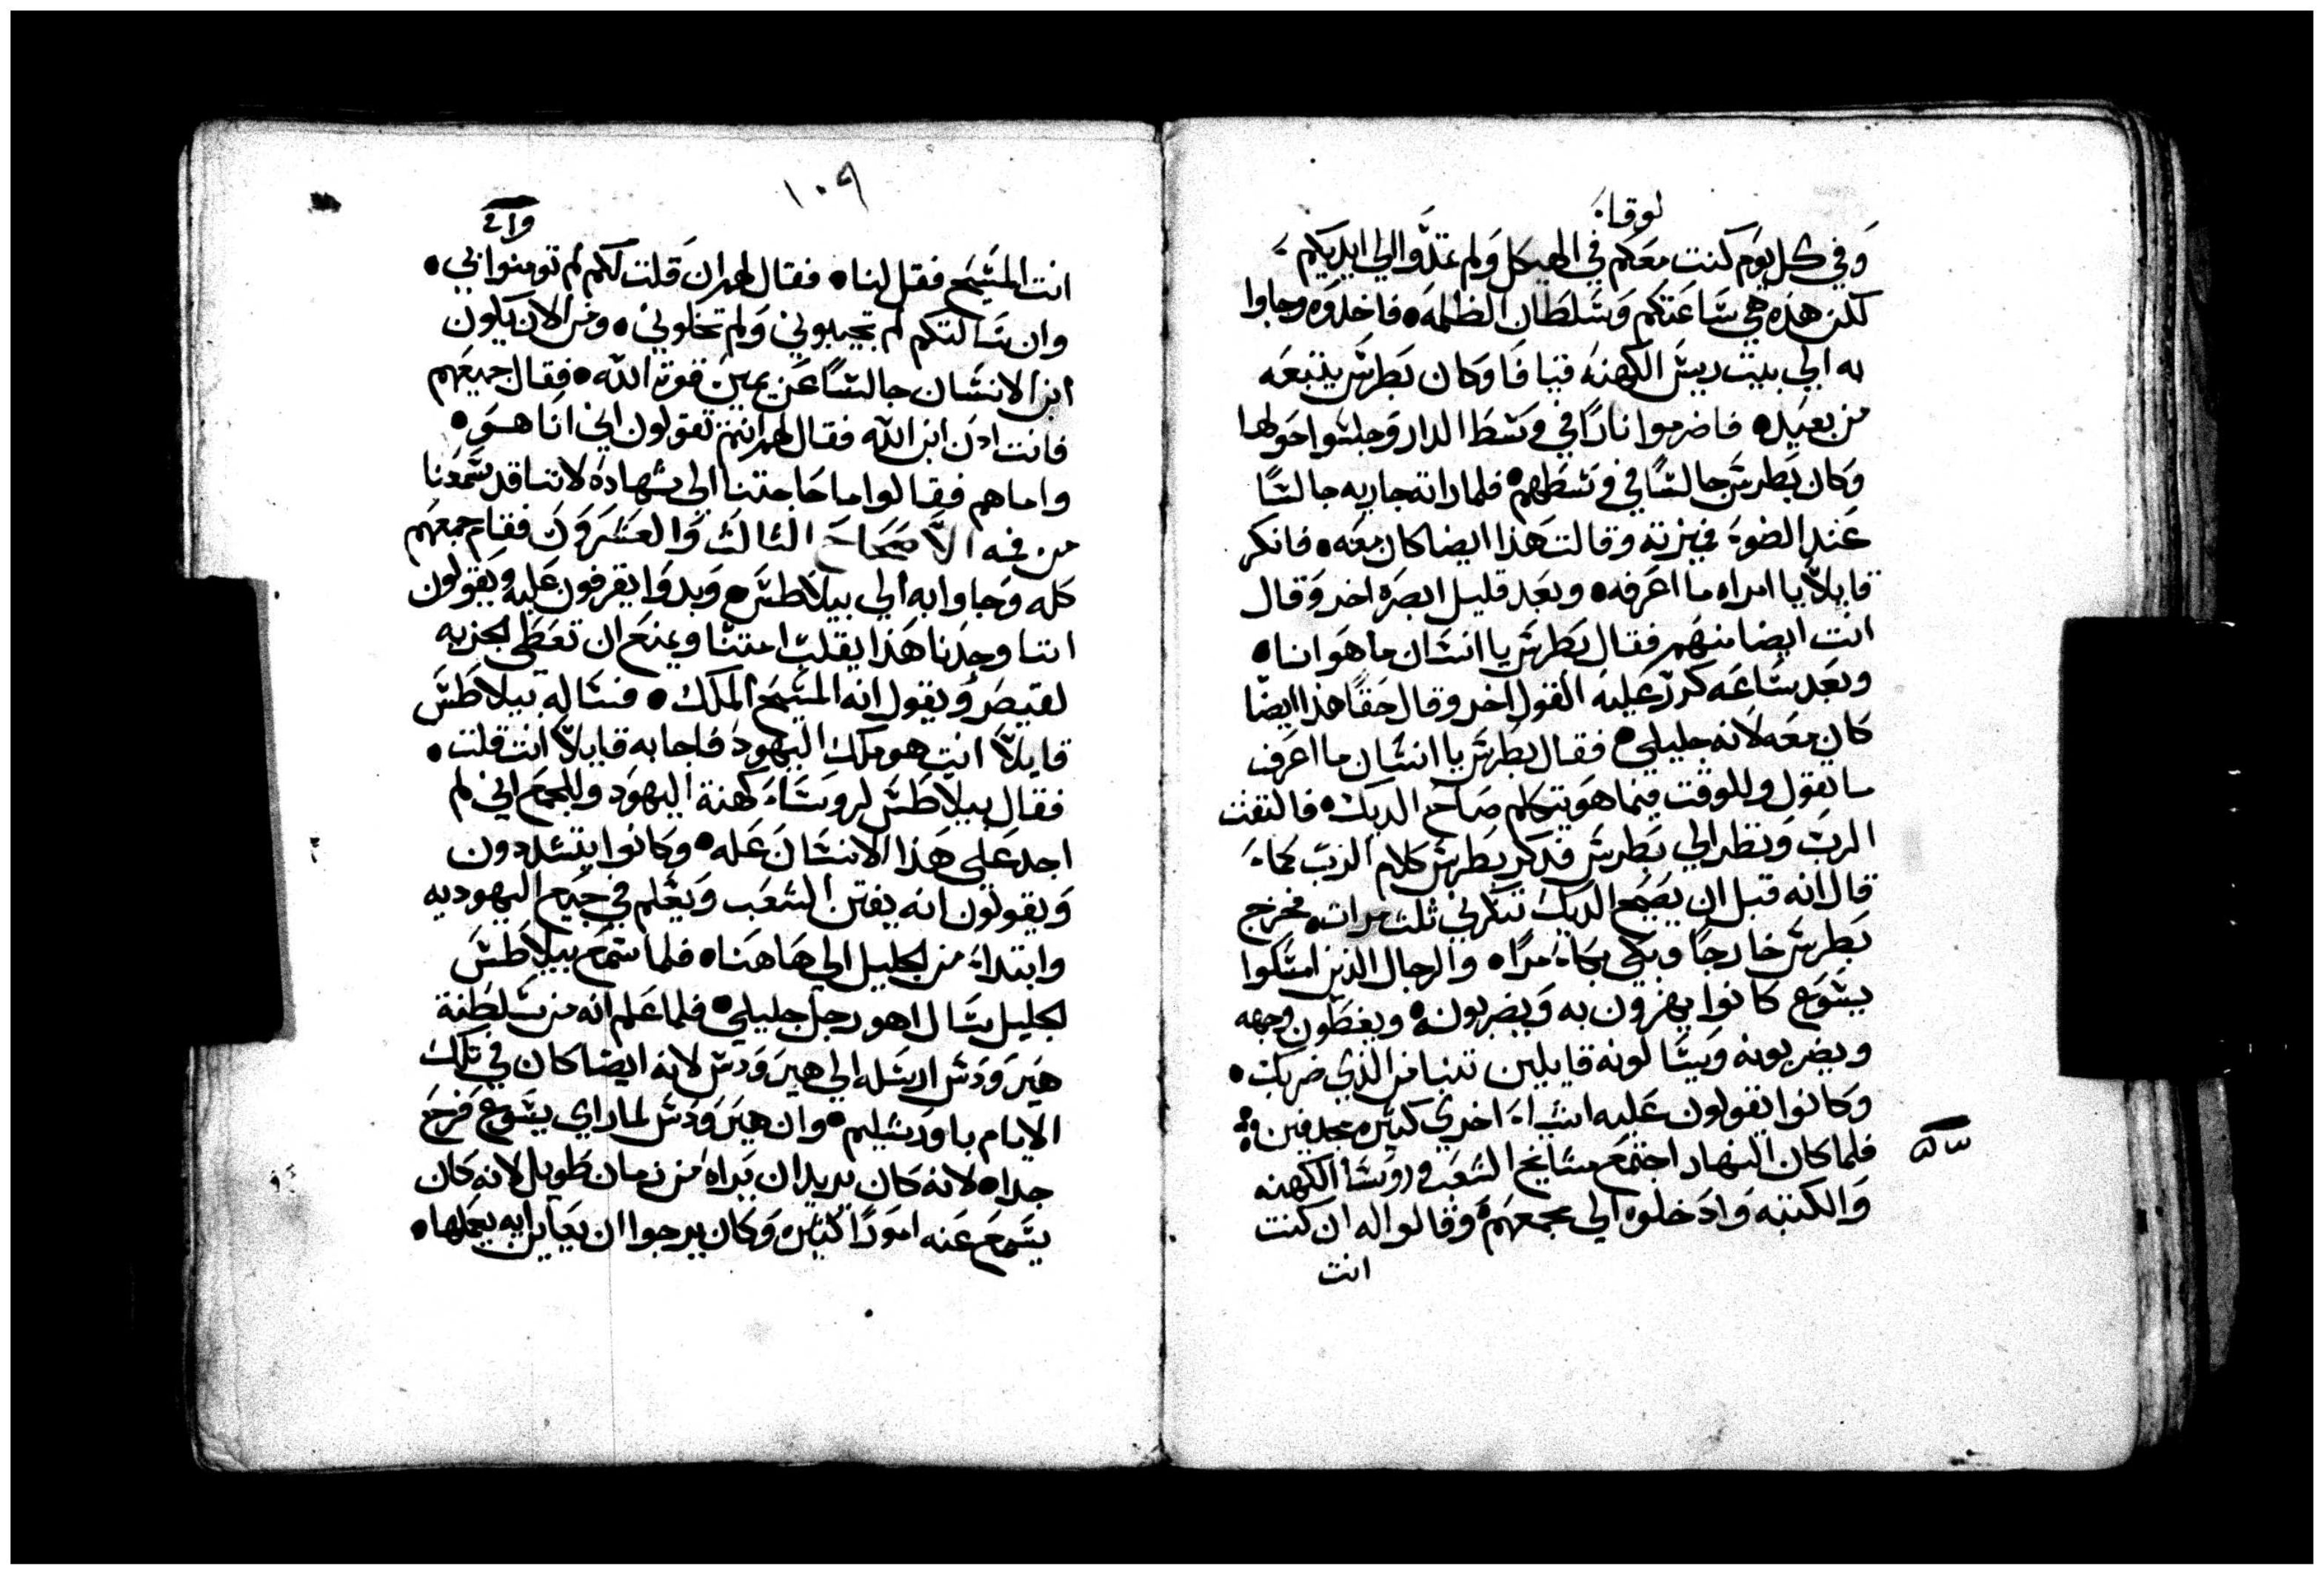 لوقا
وفي كل يوم كنت معكم في الهيكل ولم تمدوا الي ايديكم
لكن هذه هي ساعتكم وسلطان الظلمه فاخذوه وجاوا
به الي بيت ريس الكهنه قيافا وكان بطرس يتبعه
من بعيد فاضرموا نارًا في وسط الدار وجلسوا حولها
وكان بطرس جالسًا في وسطهم فلما راته جاريه جالسًا
عند الضوء فميزته وقالت هذا ايضا كان معه فانكر
قايلًا يا امراه ما اعرفه وبعد قليل ابصره اخر وقال
انت ايضا منهم فقال بطرس يا انسان ما هو انا
وبعد ساعه كرر عليه القول اخر وقال حقًا هذا ايضًا
كان معه لانه جليلي فقال بطرس يا انسان ما اعرف
ما تقول وللوقت فيما هو يتكلم صاح الديك فالتفت
الرب ونظر الي بطرس فدكر بطرس كلام الرب كماء
قال انه قبل ان يصيح الديك تنكرني ثلث مرات فخرج
بطرس خارجًا وبكي بكاء مرًا والرجال الذين امسكوا
يسوع كانوا يهزون به ويضربونه ويغطون وجهه
ويضربونه ويسالونه قايلين تنبا من الذي ضربك
وكانوا يقولون عليه اشياء اخري كثيره مجدفين
فلما كان النهار اجتمع مشايخ الشعب وروسا الكهنه
والكتبه وادخلوه الي مجمعهم وقالوا له ان كنت
انت
١٠٩
انت المسيح فقل لنا فقال لهم ان قلت لكم لم تومنوا بي
وان سالتكم لم تجيبوني ولم تخلوني ومن الان يكون
ابن الانسان جالسًا عن يمين قوة الله فقال جميعهم
فانت ادن ابن الله فقال لهم انتم تقولون اني انا هو
واما هم فقالوا ما حاجتنا الي شهاده لاننا قد سمعنا
من فمه الاصحاح الثالث والعشرون فقام جمعهم
كله وجاوا به الي بيلاطس وبدوا يقرفون عليه ويقولون
اننا وجدنا هذا يقلب امتنا ويمنع ان تعطي الجزيه
لقيصر ويقول انه المسيح الملك فساله بيلاطس
قايلًا انت هو ملك اليهود فاجابه قايلًا انت قلت
فقال بيلاطس لروساء كهنة اليهود وللجمع اني لم
اجد علي هذا الانسان عله وكانوا يتشددون
ويقولون انه يفتن الشعب ويعلم في جميع اليهوديه
وابتداء من الجليل الي هاهنا فلما سمع بيلاطس
الجليل سال اهو رجل جليلي فلما علم انه من سلطنة
هيرودس ارسله الي هيرودس لانه ايضا كان في تلك
الايام باورشليم وان هيرودس لما راي يسوع فرح
جدا لانه كان يريد ان يراه من زمان طويل لانه كان
يسمع عنه امورًا كثيره وكان يرجوا ان يعاين ايه يعملها